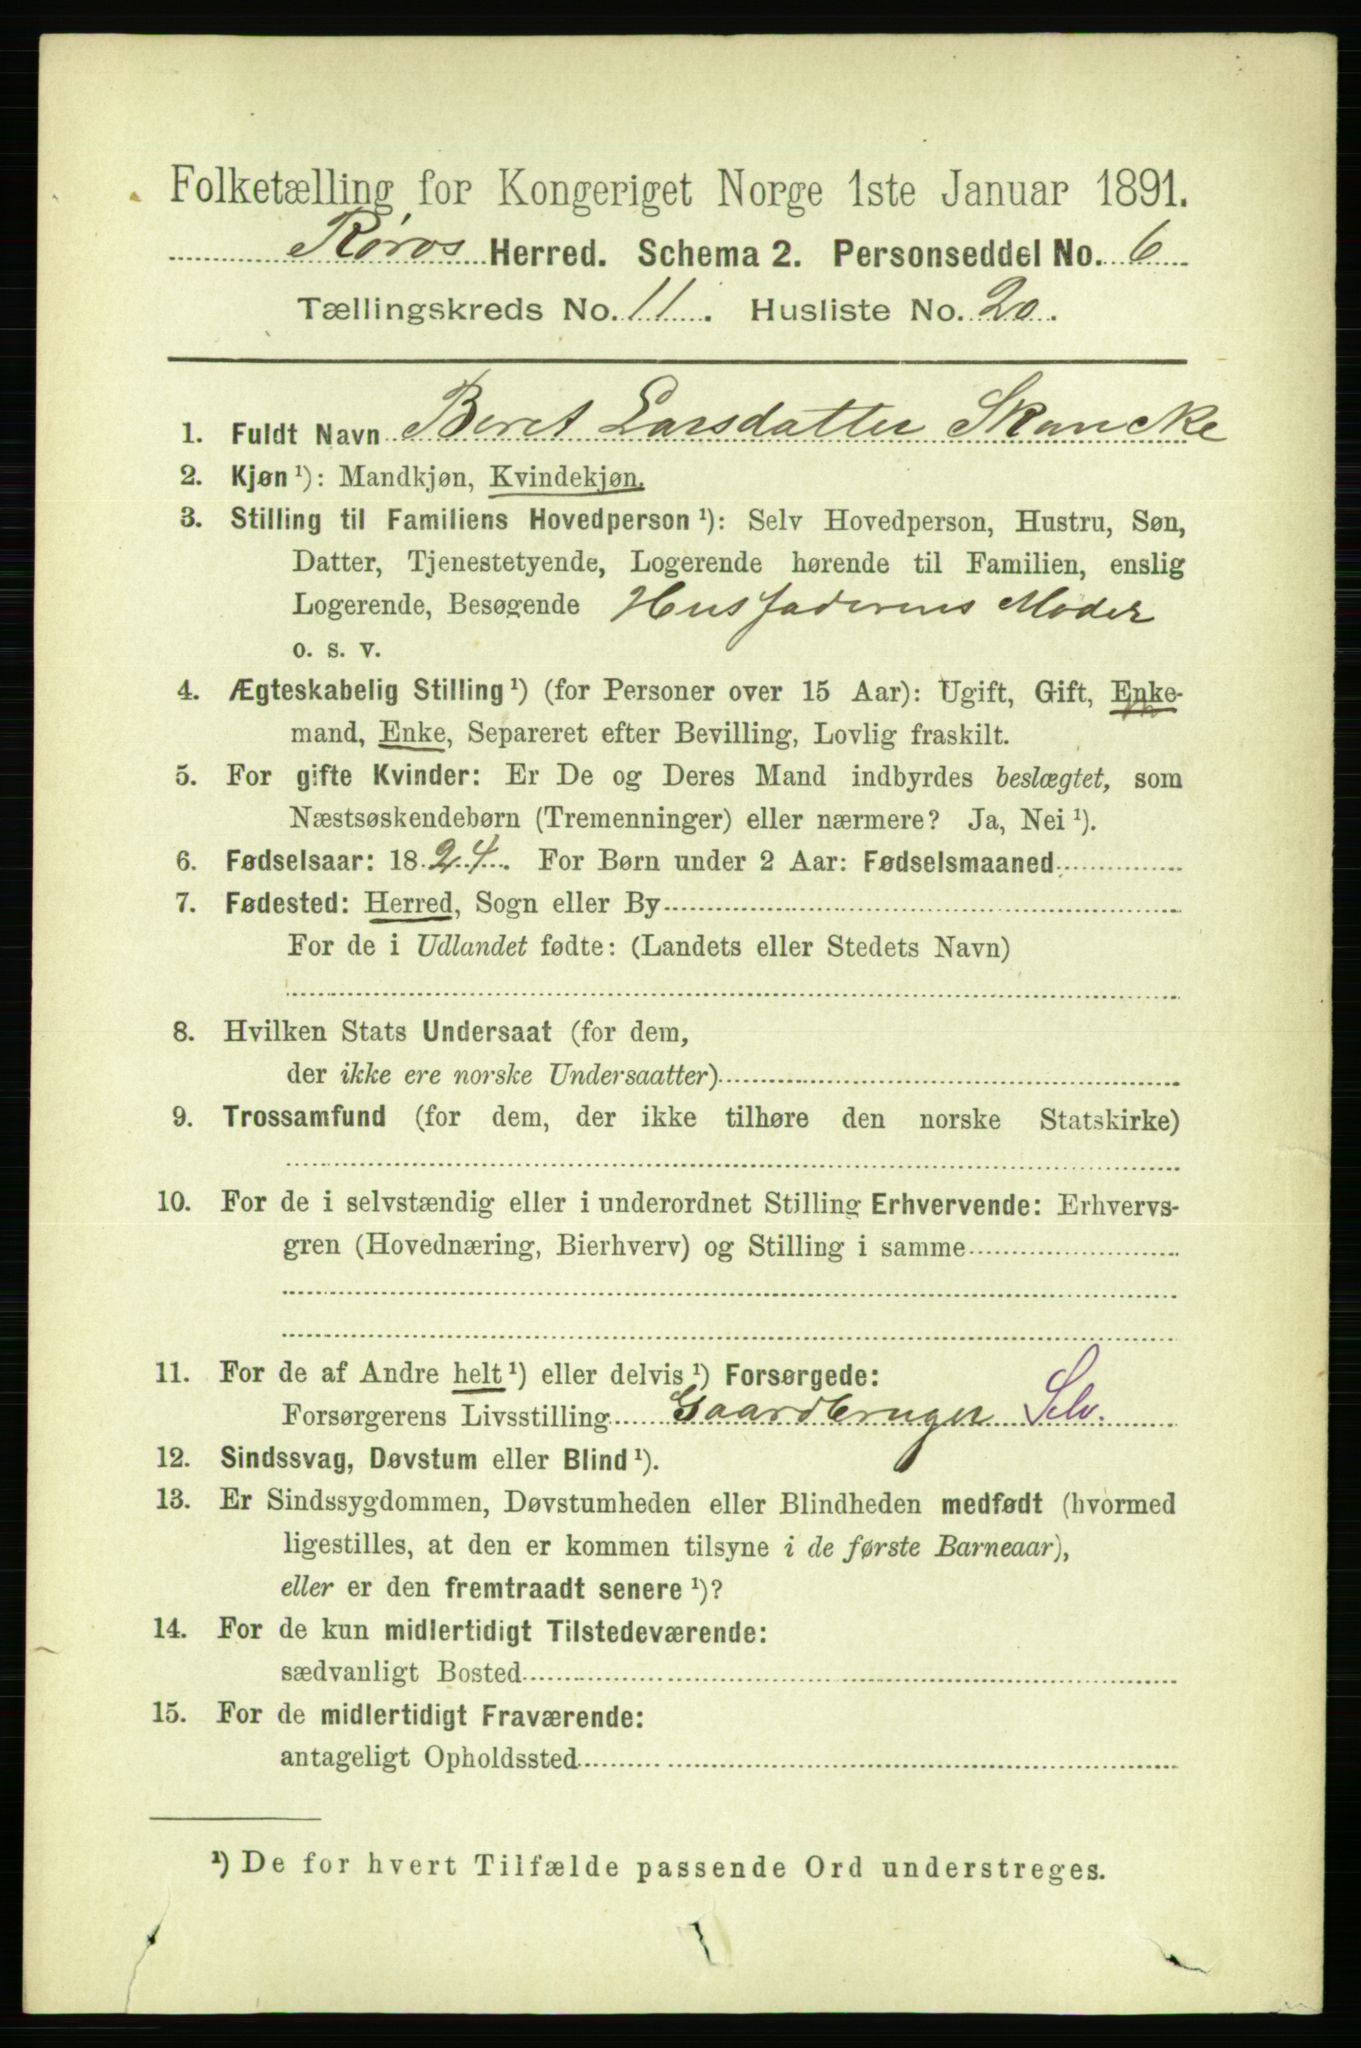 Folketælling for Kongeriget Norge 1ste Januar 1891.
Røros Herred. Schema 2. Personseddel No. 6
Tællingskreds No. 11. Husliste No. 20.
1. Fuldt Navn Beret Larsdatter Skancke
2. Kjøn ¹): Mandkjøn, Kvindekjøn.
3. Stilling til Familiens Hovedperson ¹): Selv Hovedperson, Hustru, Søn,
Datter, Tjenestetyende, Logerende hørende til Familien, enslig
Logerende, Besøgende Husfaderens Moder
o. s. v.
4. Ægteskabelig Stilling ¹) (for Personer over 15 Aar): Ugift, Gift, Enke-
mand, Enke, Separeret efter Bevilling, Lovlig fraskilt.
5. For gifte Kvinder: Er De og Deres Mand indbyrdes beslægtet, som
Næstsøskendebørn (Tremenninger) eller nærmere? Ja, Nei ¹).
6. Fødselsaar: 1824. For Børn under 2 Aar: Fødselsmaaned
7. Fødested: Herred, Sogn eller By
For de i Udlandet fødte: (Landets eller Stedets Navn)
8. Hvilken Stats Undersaat (for dem,
der ikke ere norske Undersaatter)
9. Trossamfund (for dem, der ikke tilhøre den norske Statskirke)
10. For de i selvstændig eller i underordnet Stilling Erhvervende: Erhvervs-
gren (Hovednæring, Bierhverv) og Stilling i samme
11. For de af Andre helt ¹) eller delvis ¹) Forsørgede:
Forsørgerens Livsstilling Gaardbruger Selv.
12. Sindssvag, Døvstum eller Blind ¹).
13. Er Sindssygdommen, Døvstumheden eller Blindheden medfødt (hvormed
ligestilles, at den er kommen tilsyne i de første Barneaar),
eller er den fremtraadt senere ¹)?
14. For de kun midlertidigt Tilstedeværende:
sædvanligt Bosted
15. For de midlertidigt Fraværende:
antageligt Opholdssted
¹) De for hvert Tilfælde passende Ord understreges.